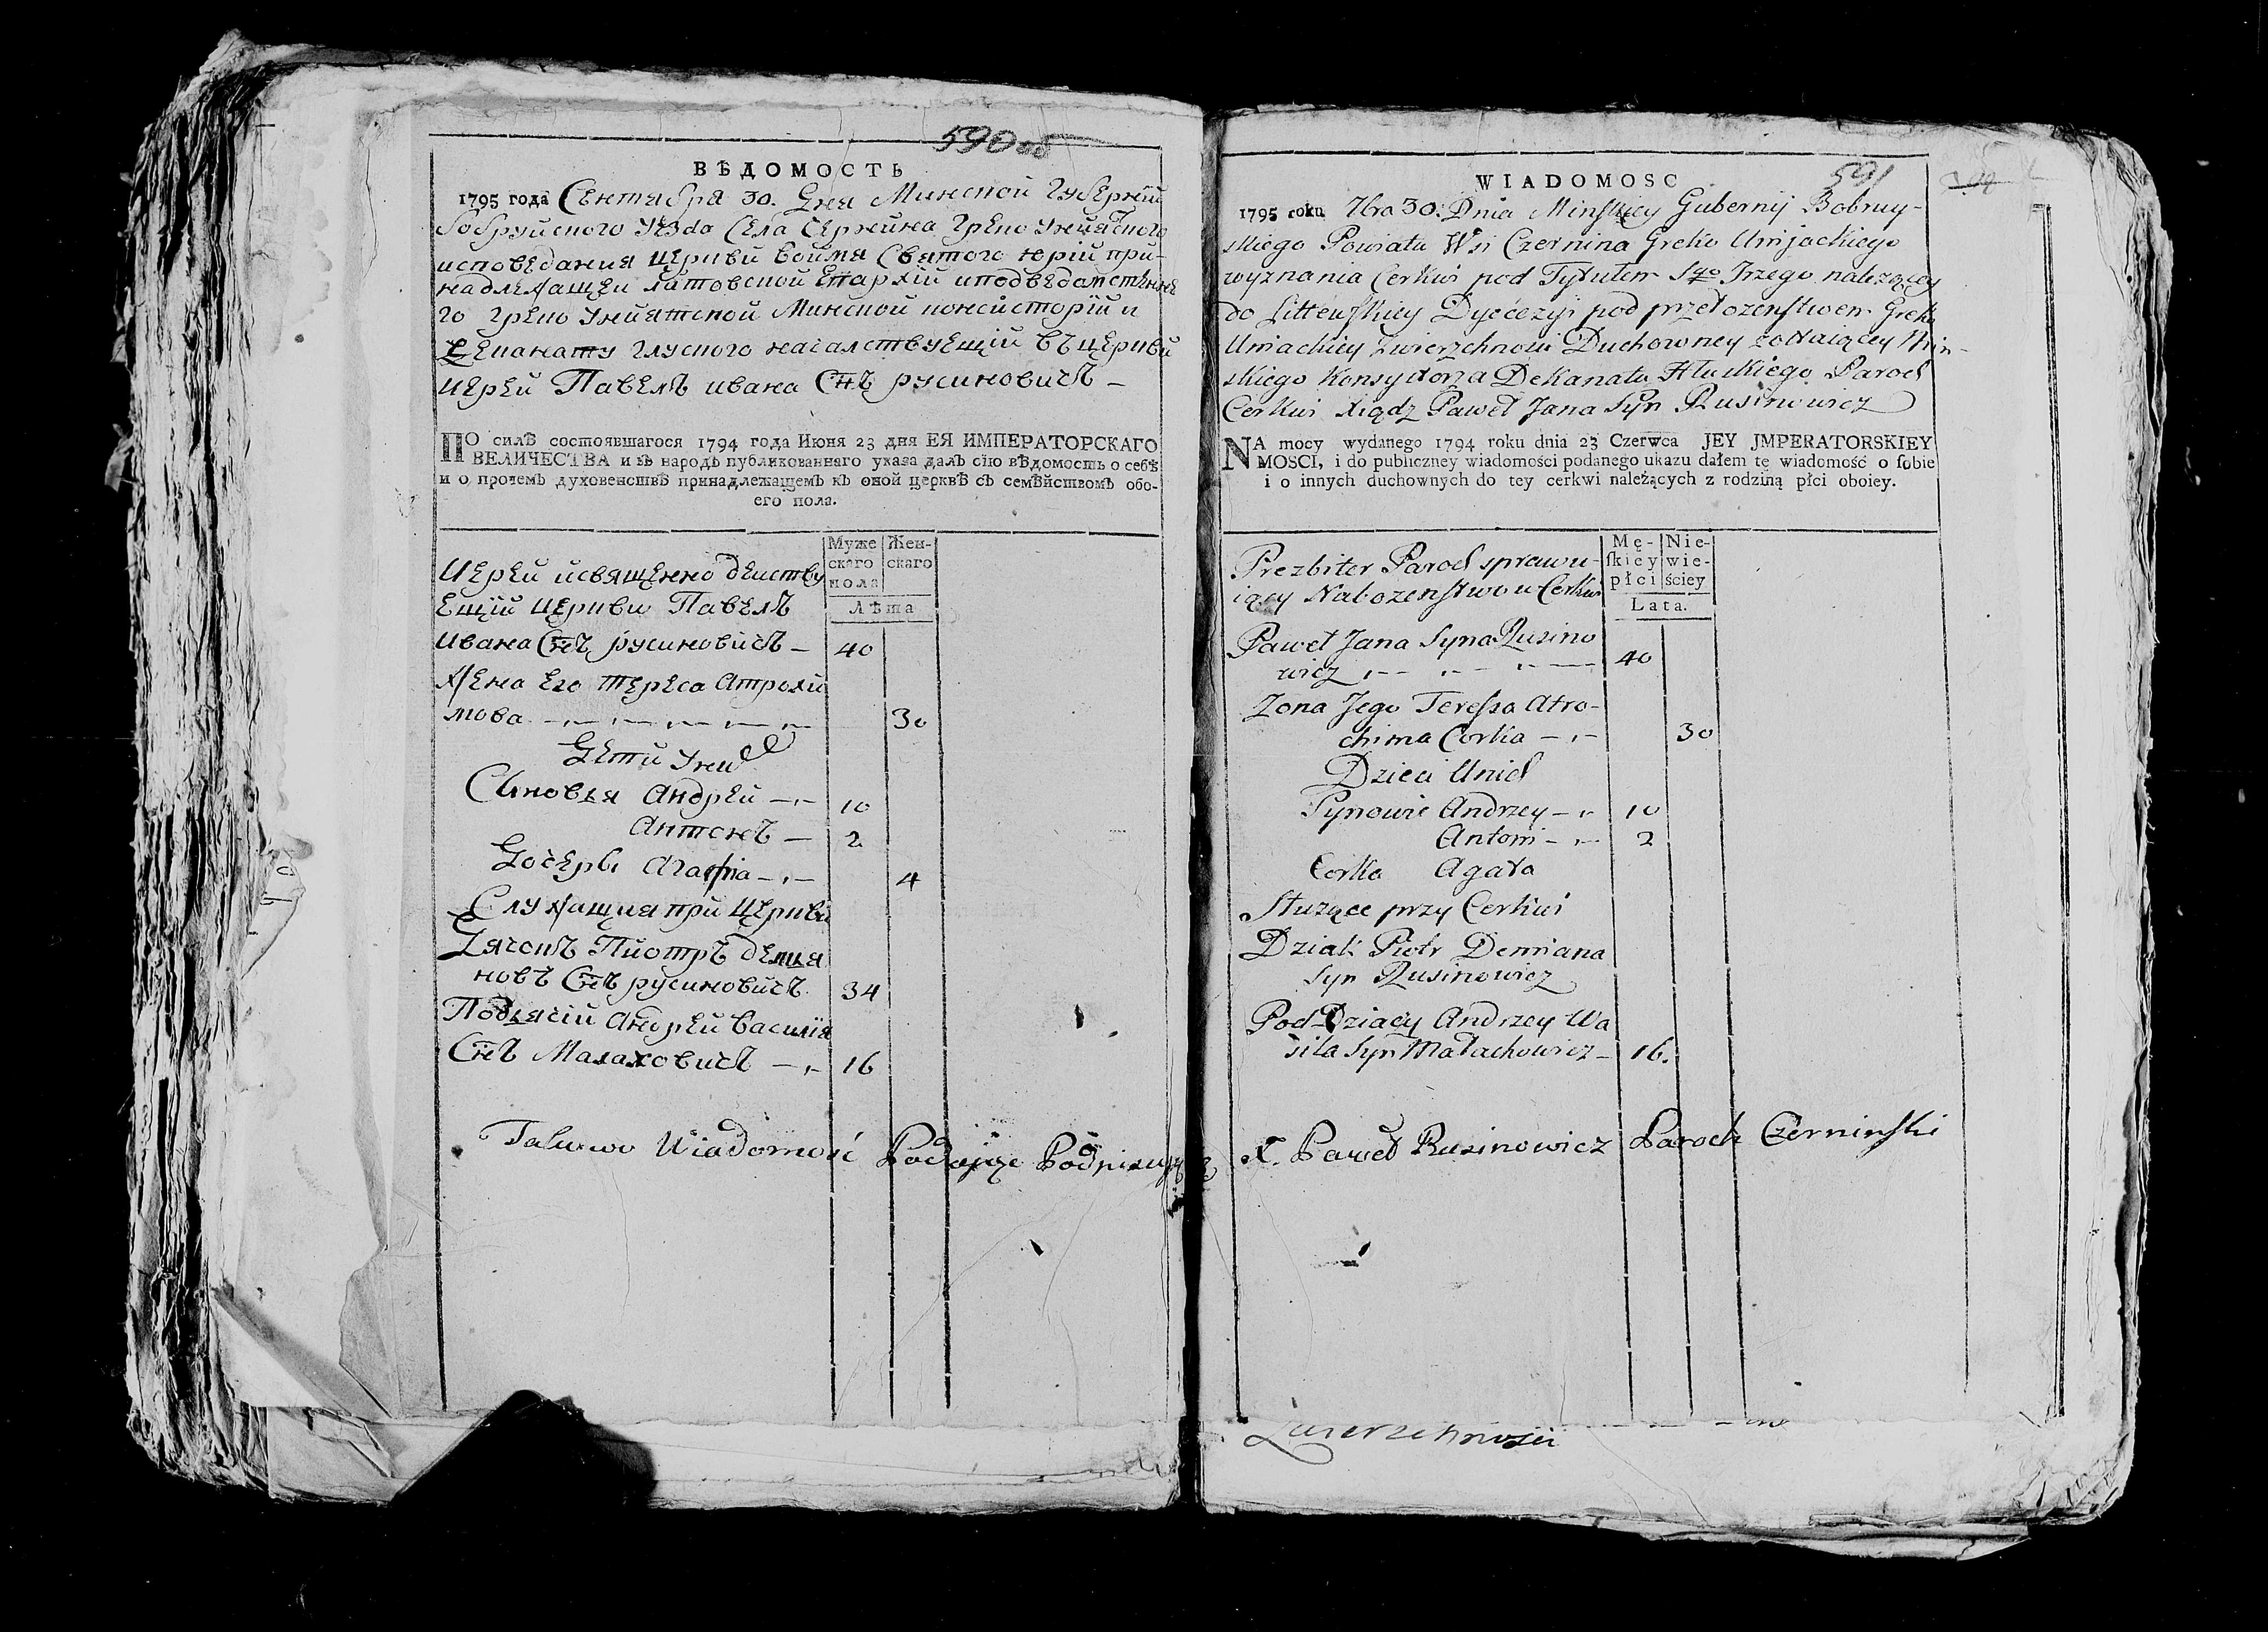 590 об
ВѢДОМОСТЬ
1795 года Сентября 30. Дня Минской Губернїи
бобруйского Уѣзда Села Чернина Греко Унїятского
исповѣдания Церкви во имя Святого Юрїй при-
надлежащей литовской Епархїй и подвѣдомственне
го Греко Унїятской Минской консисторїй и
Деканату Глуского начальствуещїй въ Церкви
иерей Павелъ ивана Снъ русиновичъ –
ПО силѣ состоявшагося 1794 года Июня 23 дня ЕЯ ИМПЕРАТОРСКАГО
ВЕЛИЧЕСТВА и въ народъ публикованнаго указа далъ сїю вѣдомость о себѣ
и о протчемъ духовенствѣ принадлежащемъ къ оной церквѣ съ семѣйствомъ обо-
его пола.
Муже скаго пола
Жен- скаго
Лѣта
Иерей и священно действу
ещїй Церкви Павелъ
ивана Снъ русиновичъ – 40
Жена Его Тереса Атрохи
мова 30
Дети У них
Сыновья Андрей 10
Антонъ – 2
Дочерь Агафиа 4
Служащия при Церкви
Дячокъ Пиотръ демья
новъ Снъ русиновичъ 34
Подьячїй Андрей Василїя
Снъ Малаховичъ 16
Takowo Wiadomość Podając Podpisuję
591
WIADOMOSC
1795 roku 7bra 30. Dnia Minskiey Gubernij Bobruy-
skiego Powiatu Wsi Czernina Greko Unijackiego
wyznania Cerkwi pod Tytułem Sgo Jrzego należącey
do Littewskiey Dyecezyi pod przełożenstwem Greko
Uniackiey Zwierzchnosci Duchowney zostaiącey Min-
skiego Konsystorza Dekanatu Hłuskiego Paroch
Cerkwi Xiądz Paweł Jana Syn Rusinowicz
NA mocy wydanego 1794 roku dnia 23 Czerwca JEY JMPERATORSKIEY
MOSCI, i do publiczney wiadomości podanego ukazu dałem tę wiadomość o sobie
i o innych duchownych do tey cerkwi należących z rodziną płci oboiey.
Mę- skiey płci
Nie- wie- ściey
Lata.
Prezbiter Paroch sprawu-
iący Nabozenstwo w Cerkwi
Paweł Jana Syna Rusino
wicz 40
Zona Jego Teressa Atro-
chima Corka 30
Dzieci Unich
Synowie Andrzey 10
Antoni 2
Corka Agata
Służące przy Cerkwi
Dziak Piotr Demiana
Syn Rusinowicz
Pod-Dziaczy Andrzey Wa
sila Syn Małachowicz – 16.
X. Paweł Rusinowicz Paroch Czerninski
Zwierzchnosci